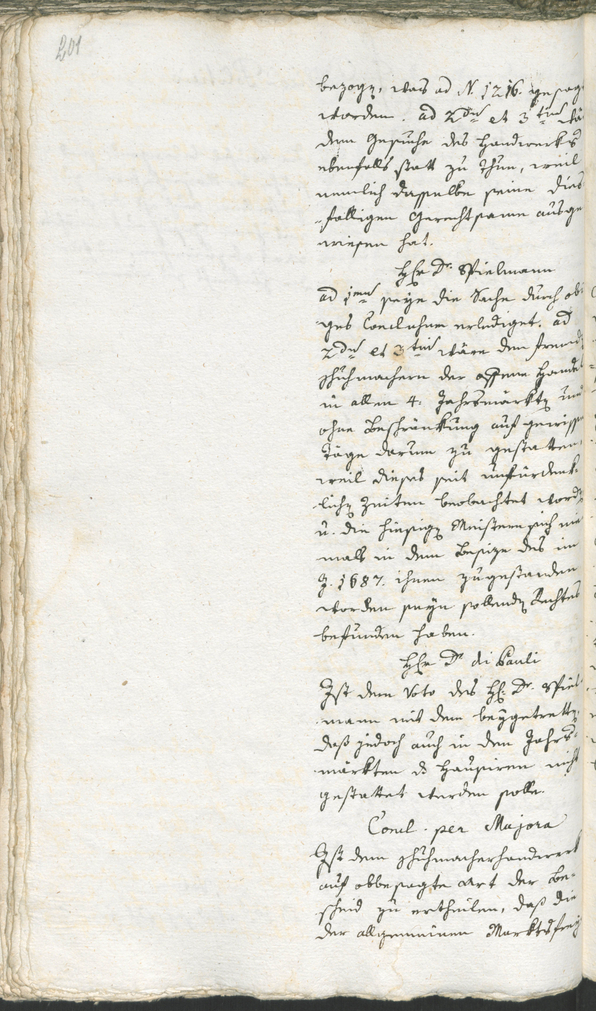 201
bezogen, was ad N. 1216. gesag
worden. ad 2dum et 3tium wä
dem Gesuche des Handwerks
ebenfalls statt zu thun, weil
nemlich dasselbe seine dies
fälligen Gerechtsame ausge
wiesen hat.
Hr Dr. Spielmann
ad 1mum seye die Sache durch obi
ges Conclusum erlediget. ad
2dum et 3tium wäre den fremden
Schuhmachern der offene Handel
in allen 4. Jahrsmärkten und
ohne Beschränkung auf gewisse
Täge darum zu gestatten,
weil dieses seit unfürdenk
lichen Zeiten beobachtet worden
u. die hiesigen Meistern sich nie
mals in dem Besize des im
J. 1687. ihnen zugestanden
worden seyn sollenden Rechtes
befunden haben.
Hr Dr. di Pauli
Ist dem Voto des H. Dr. Spiel
mann mit dem beygetretten,
daß jedoch auch in den Jahrs
märkten das Hausiren nicht
gestattet werden solle.
Concl. per Majora
Ist dem Schuhmacherhandwerk
auf obbesagte Art der Be
scheid zu ertheilen, daß die
der allgemeinen Marktsfrey